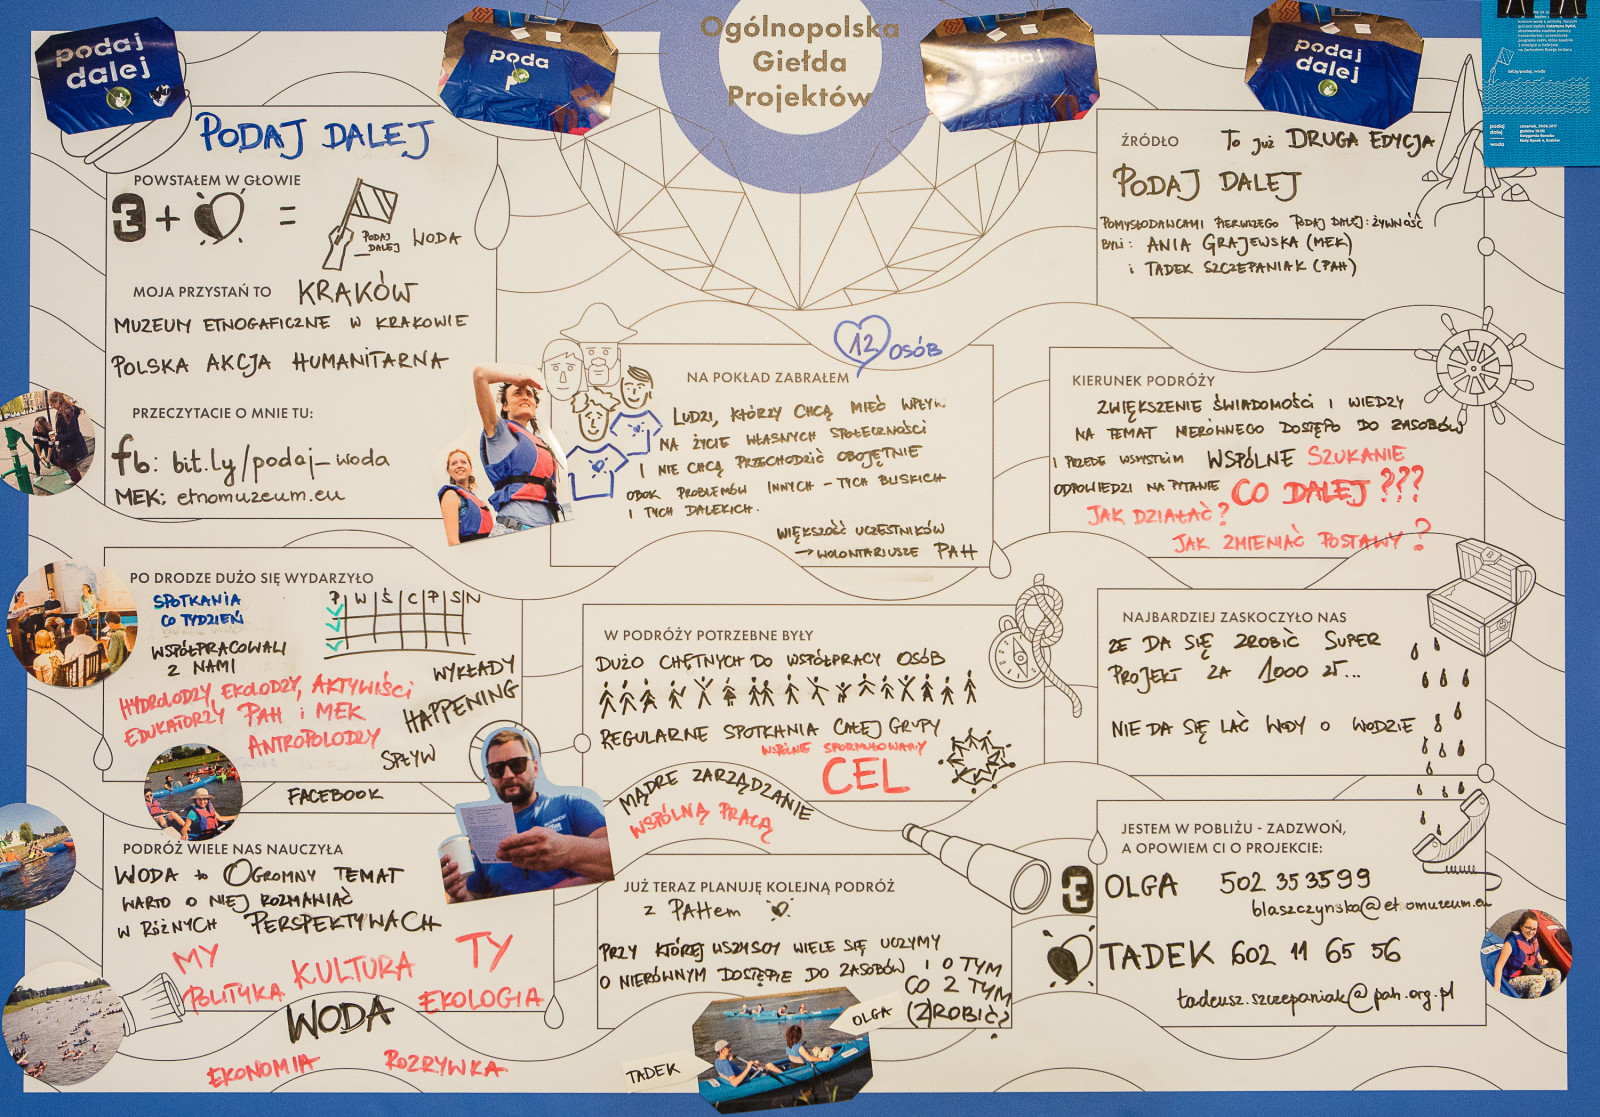 Ogólnopolska
Giełda
Projektów
podaj
dalej
poda
podaj
dalej
bit.ly/podaj_woda
podaj
dalej
woda
czwartek, 29.06.2017
PODAJ DALEJ
POWSTAŁEM W GŁOWIE
3 + =
PODAJ
DALEJ
WODA
MOJA PRZYSTAŃ TO KRAKÓW
MUZEUM ETNOGAFICZNE W KRAKOWIE
POLSKA AKCJA HUMANITARNA
PRZECZYTACIE O MNIE TU:
fb: bit.ly/podaj_woda
MEK: etnomuzeum.eu
ŹRÓDŁO To już DRUGA EDYCJA
PODAJ DALEJ
POMYSŁODAWCAMI PIERWSZEGO PODAJ DALEJ: ŻYWNOŚĆ
BYLI: ANIA GRAJEWSKA (MEK)
i TADEK SZCZEPANIAK (PAH)
12 OSÓB
NA POKŁAD ZABRAŁEM
LUDZI, KTÓRZY CHCĄ MIEĆ WPŁYW
NA ŻYCIE WŁASNYCH SPOŁECZNOŚCI
I NIE CHCĄ PRZECHODZIĆ OBOJĘTNIE
OBOK PROBLEMÓW INNYCH - TYCH BLISKICH
I TYCH DALEKICH.
WIĘKSZOŚĆ UCZESTNIKÓW
→ WOLONTARIUSZE PAH
KIERUNEK PODRÓŻY
ZWIĘKSZENIE ŚWIADOMOŚCI I WIEDZY
NA TEMAT NIERÓWNEGO DOSTĘPO DO ZASOBÓW
I PRZEDE WSZYSTKIM WSPÓLNE SZUKANIE
ODPOWIEDZI NA PYTANIE CO DALEJ???
JAK DZIAŁAĆ?
JAK ZMIENIAĆ POSTAWY?
PO DRODZE DUŻO SIĘ WYDARZYŁO
SPOTKANIA
CO TYDZIEŃ
P W Ś C P S N
WSPÓŁPRACOWALI
Z NAMI
HYDROLODZY, EKOLODZY, AKTYWIŚCI
EDUKATORZY PAH i MEK
ANTROPOLODZY
WYKŁADY
HAPPENING
SPŁYW
FACEBOOK
W PODRÓŻY POTRZEBNE BYŁY
DUŻO CHĘTNYCH DO WSPÓŁPRACY OSÓB
REGULARNE SPOTKANIA CAŁEJ GRUPY
WSPÓLNIE SFORMUŁOWANY
CEL
MĄDRE ZARZĄDZANIE
WSPÓLNĄ PRACĄ
NAJBARDZIEJ ZASKOCZYŁO NAS
ŻE DA SIĘ ZROBIĆ SUPER
PROJEKT ZA 1000 zł...
NIE DA SIĘ LAĆ WODY O WODZIE
PODRÓŻ WIELE NAS NAUCZYŁA
WODA to OGROMNY TEMAT
WARTO O NIEJ ROZMAWIAĆ
W RÓŻNYCH PERSPEKTYWACH
MY
POLITYKA
KULTURA
TY
EKOLOGIA
WODA
EKONOMIA
ROZRYWKA
JUŻ TERAZ PLANUJĘ KOLEJNĄ PODRÓŻ
z PAHem
PRZY KTÓREJ WSZYSCY WIELE SIĘ UCZYMY
O NIERÓWNYM DOSTĘPIE DO ZASOBÓW I O TYM
CO Z TYM
(Z)ROBIĆ?
OLGA
TADEK
JESTEM W POBLIŻU - ZADZWOŃ,
A OPOWIEM CI O PROJEKCIE:
3 OLGA 502 353599
blaszczynska@etnomuzeum.eu
TADEK 602 11 65 56
tadeusz.szczepaniak@pah.org.pl